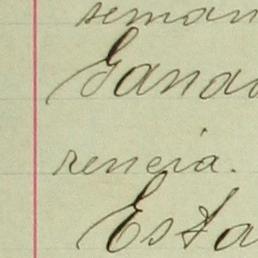 seman
Ganad
rencia.
Esta